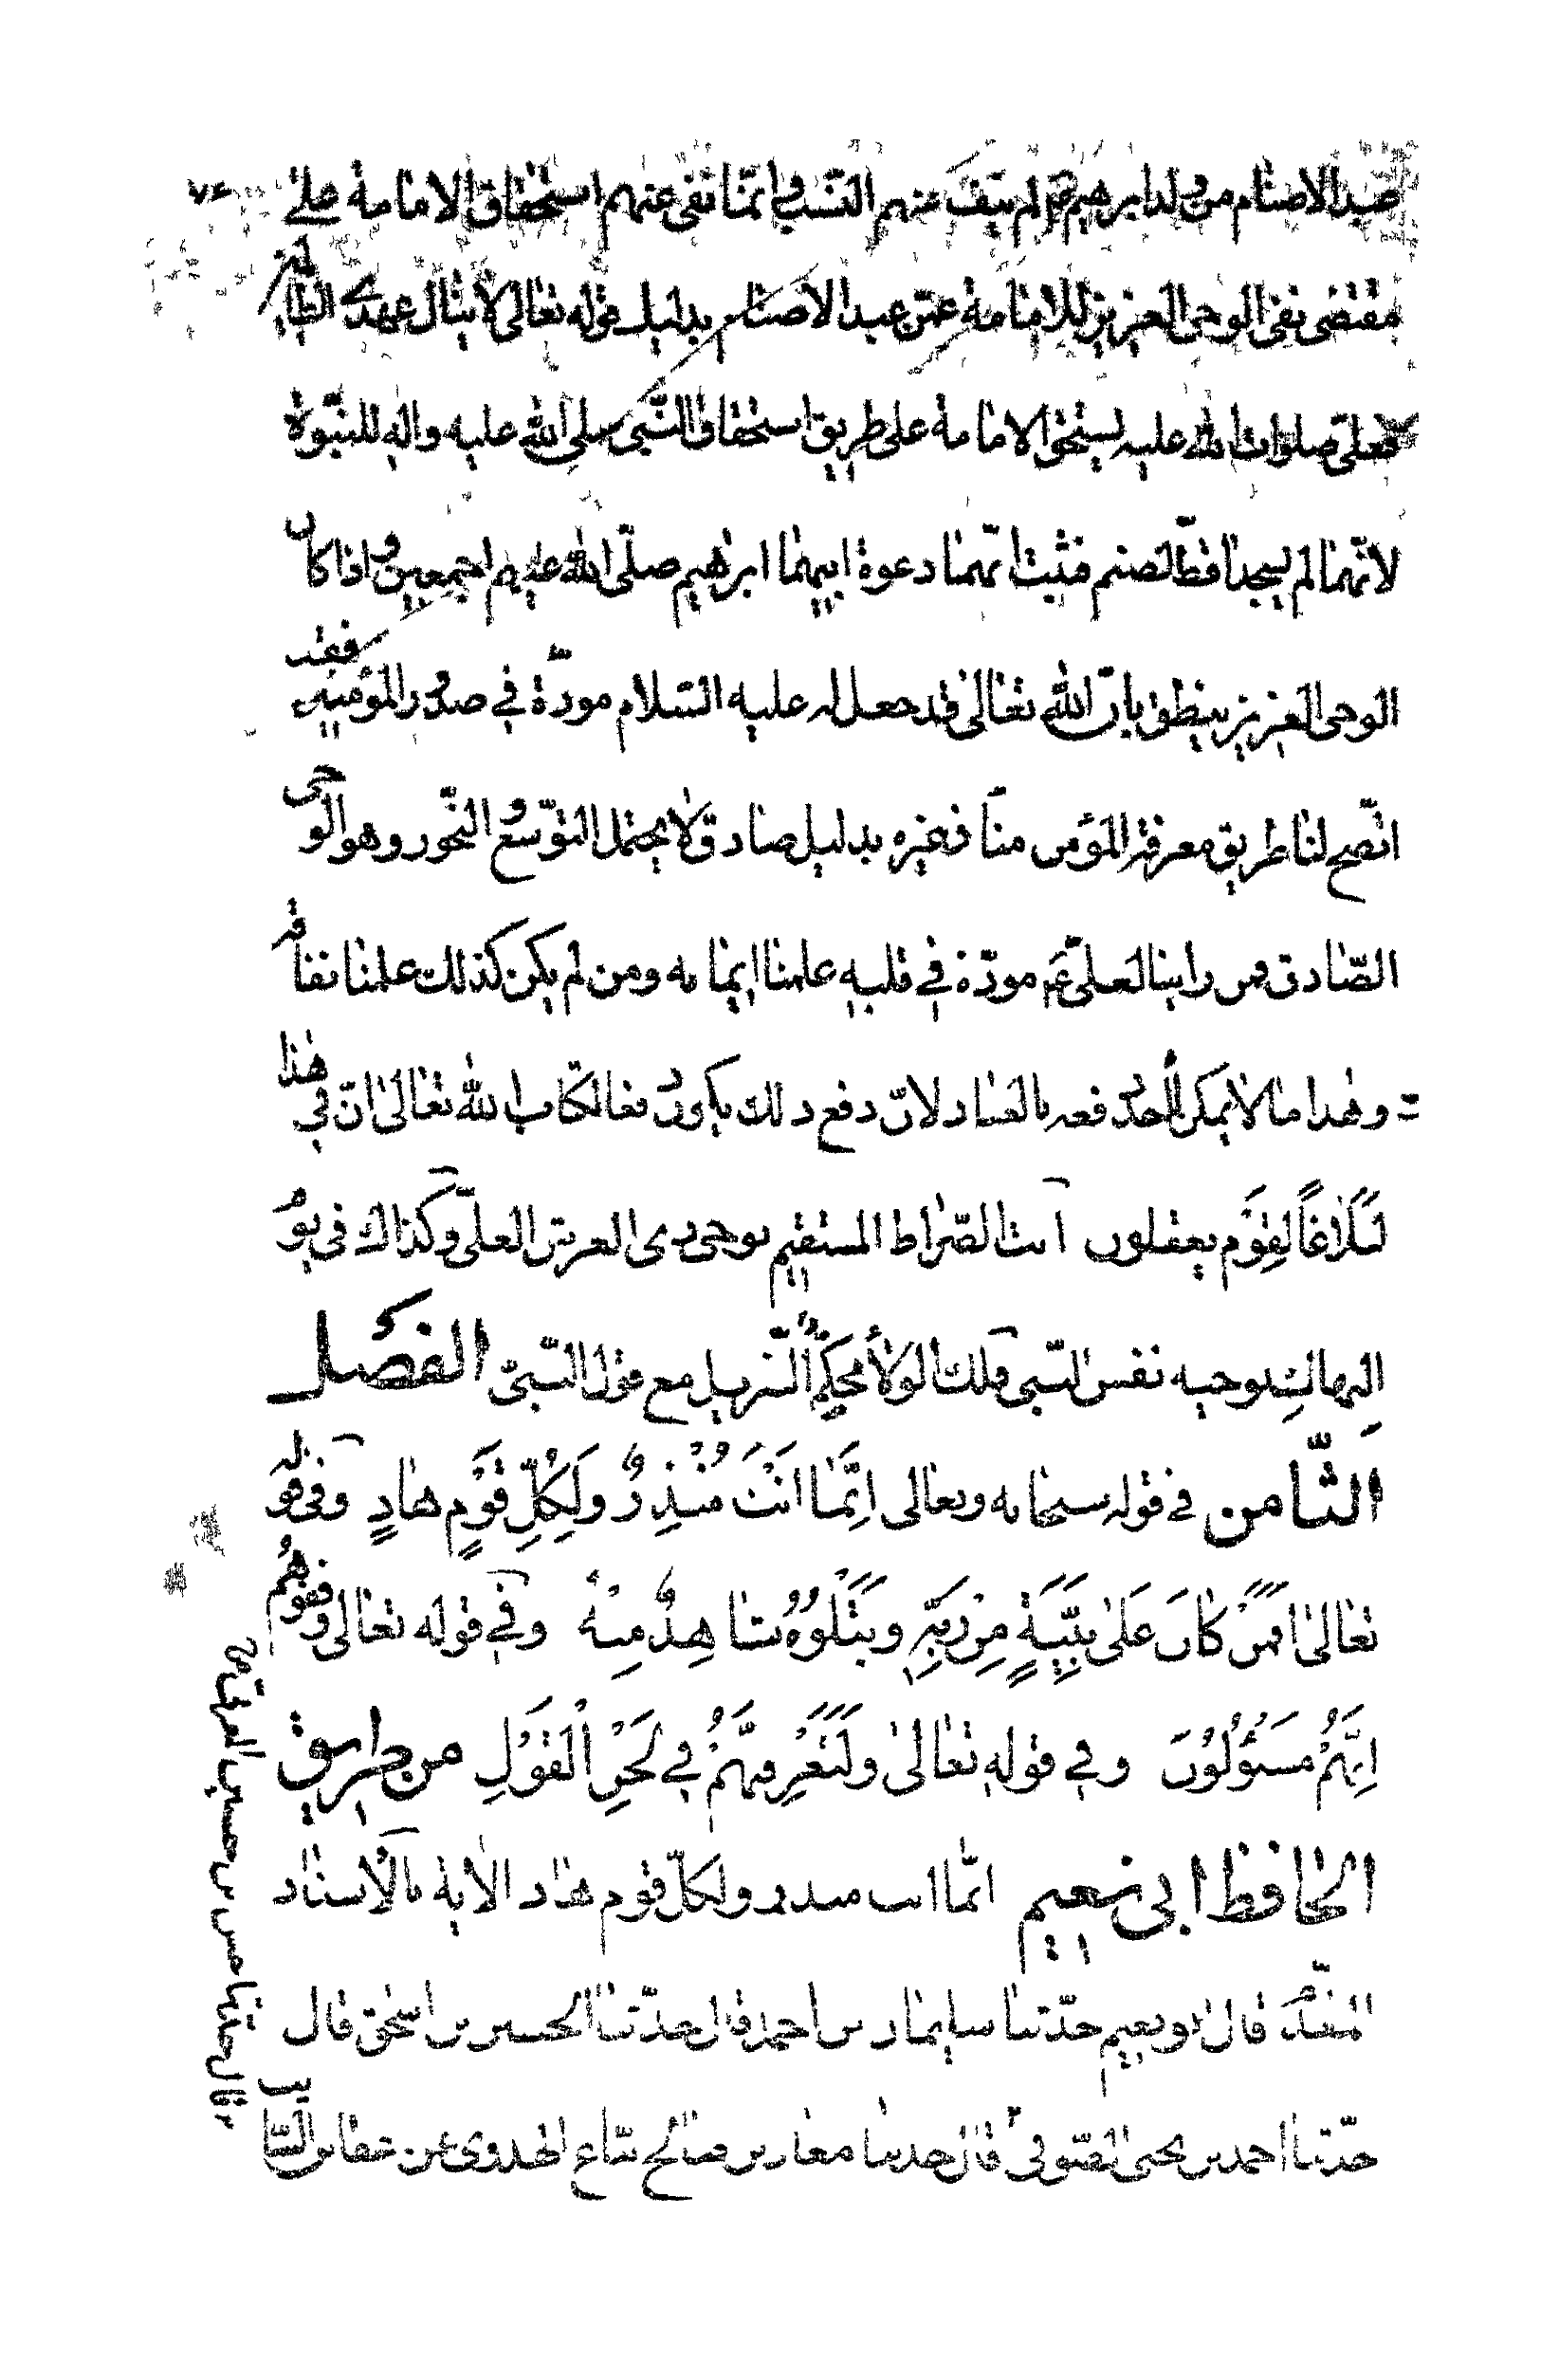 عبد الاصنام من ولد ابرهيم لم ينف عنهم النسب وانما نفى عنهم استحقاق الامامة على
مقتضى نفى الوحى العزيز للامامة عمّن عبد الاصنام بدليل قوله تعالى لا ينال عهدى الظالمين
فعلىّ صلوات الله عليه يستحق الامامة على طريق استحقاق النّبى صلى الله عليه واله للنبّوة
لانّهما لم يسجدا قطّ لصنم فثبت انّهما دعوة ابيهما ابرهيم صلّى الله عليهم اجمعين واذا كان
الوحى العزيز ينطق بانّ الله تعالى قد جعل له عليه السّلام مودّة في صدور المؤمنين فقد
اتّضح لنا طريق معرفة المؤمن منّا من غيره بدليل صادق لا يحتمل التوّسع والتجّوز وهو الوحى
الصّادق فمن راينا لعلىّ ع مودّة في قلبه علمنا ايمانه ومن لم يكن كذلك علمنا نفاقه
وهذا ما لا يمكن احد دفعه بالعناد لانّ دفع ذلك يكون دفعا لكتاب الله تعالى انّ في هذا
لَبَلَاغاً لِقَوْمٍ يعقلون انت الصّراط المستقيم بوحى ذى العرش العلىّ وكذاك فى يو
نفس النّبى مع قول النّبىّ الفصل
الثّامن في قوله سبحانه وتعالى اِنَّمَا اَنْتَ مُنْذِرٌ وَلِكُلِّ قَوْمٍ هَادٍ وفى قوله
تعالى اَفَمَنْ كَانَ عَلى بَيِّنَةٍ مِنْ رَبِّهِ وَيَتْلُوهُ شَاهِدٌ مِنْهُ وفي قوله تعالى وقفوهُم
اِنَّهُمْ مَسْئُولُونَ وفي قوله تعالى وَلَتَعْرِفَنَّهُمْ في لَحْنِ الْقَوْلِ من طريق
الحافظ ابى نعيم انّما انت منذر ولكلّ قوم هاد الاية بالاسناد
المقدّم قال ابو نعيم حدّثنا سليمان بن احمد قال حدّثنا الحسين بن اسحق قال
حدّثنا احمد بن يحيى الصّوفى قال حدثنا معاذ بن صالح عن عطاء بن السّائب
قال حدّثنا حسن بن حسين العرنى